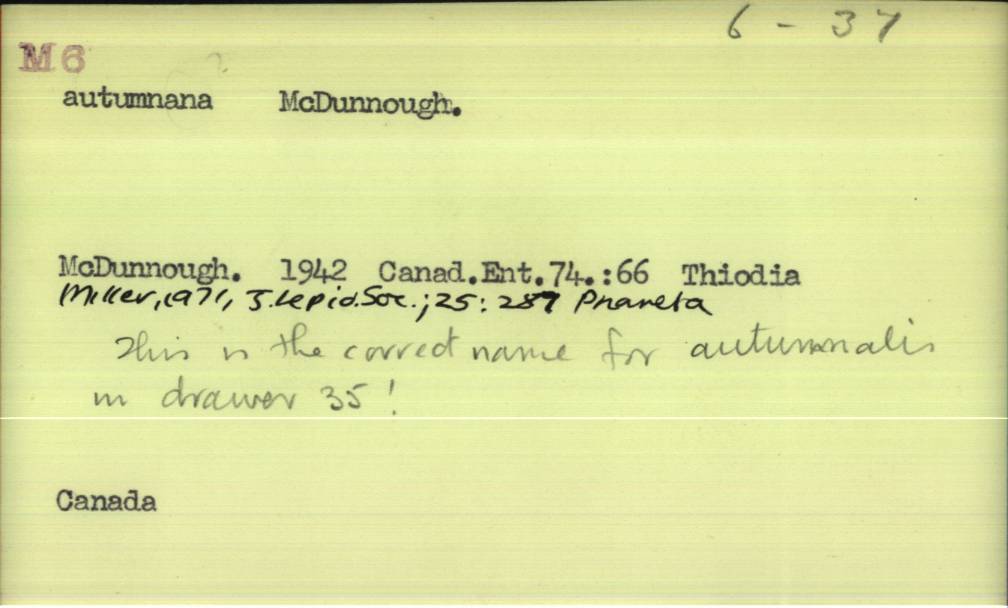 6 - 37
M6
?
autumnana McDunnough.
McDunnough. 1942 Canad.Ent.74.:66 Thiodia
Miller, 1971, J. Lepid. Soc.; 25: 287 Phaneta
This is the correct name for autumnalis
in drawer 35!
Canada